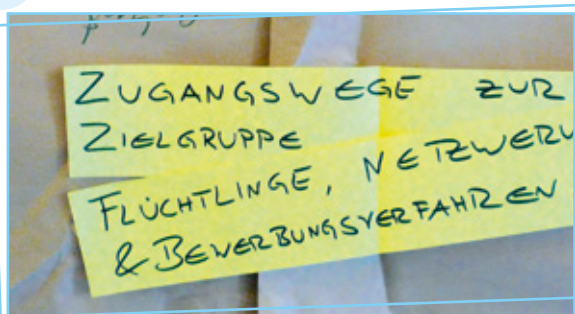 ZUGANGSWEGE ZUR
ZIELGRUPPE
FLÜCHTLINGE,
& BEWERBUNGSVERFAHREN